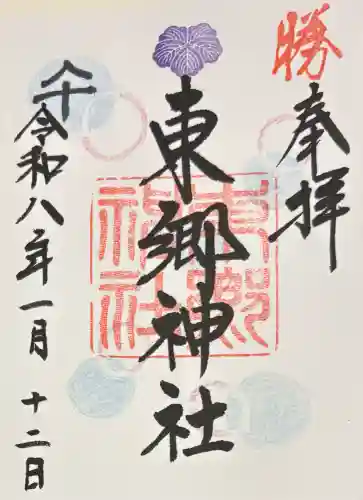 勝
奉拝
東郷神社
東郷神社
令和八年一月十二日